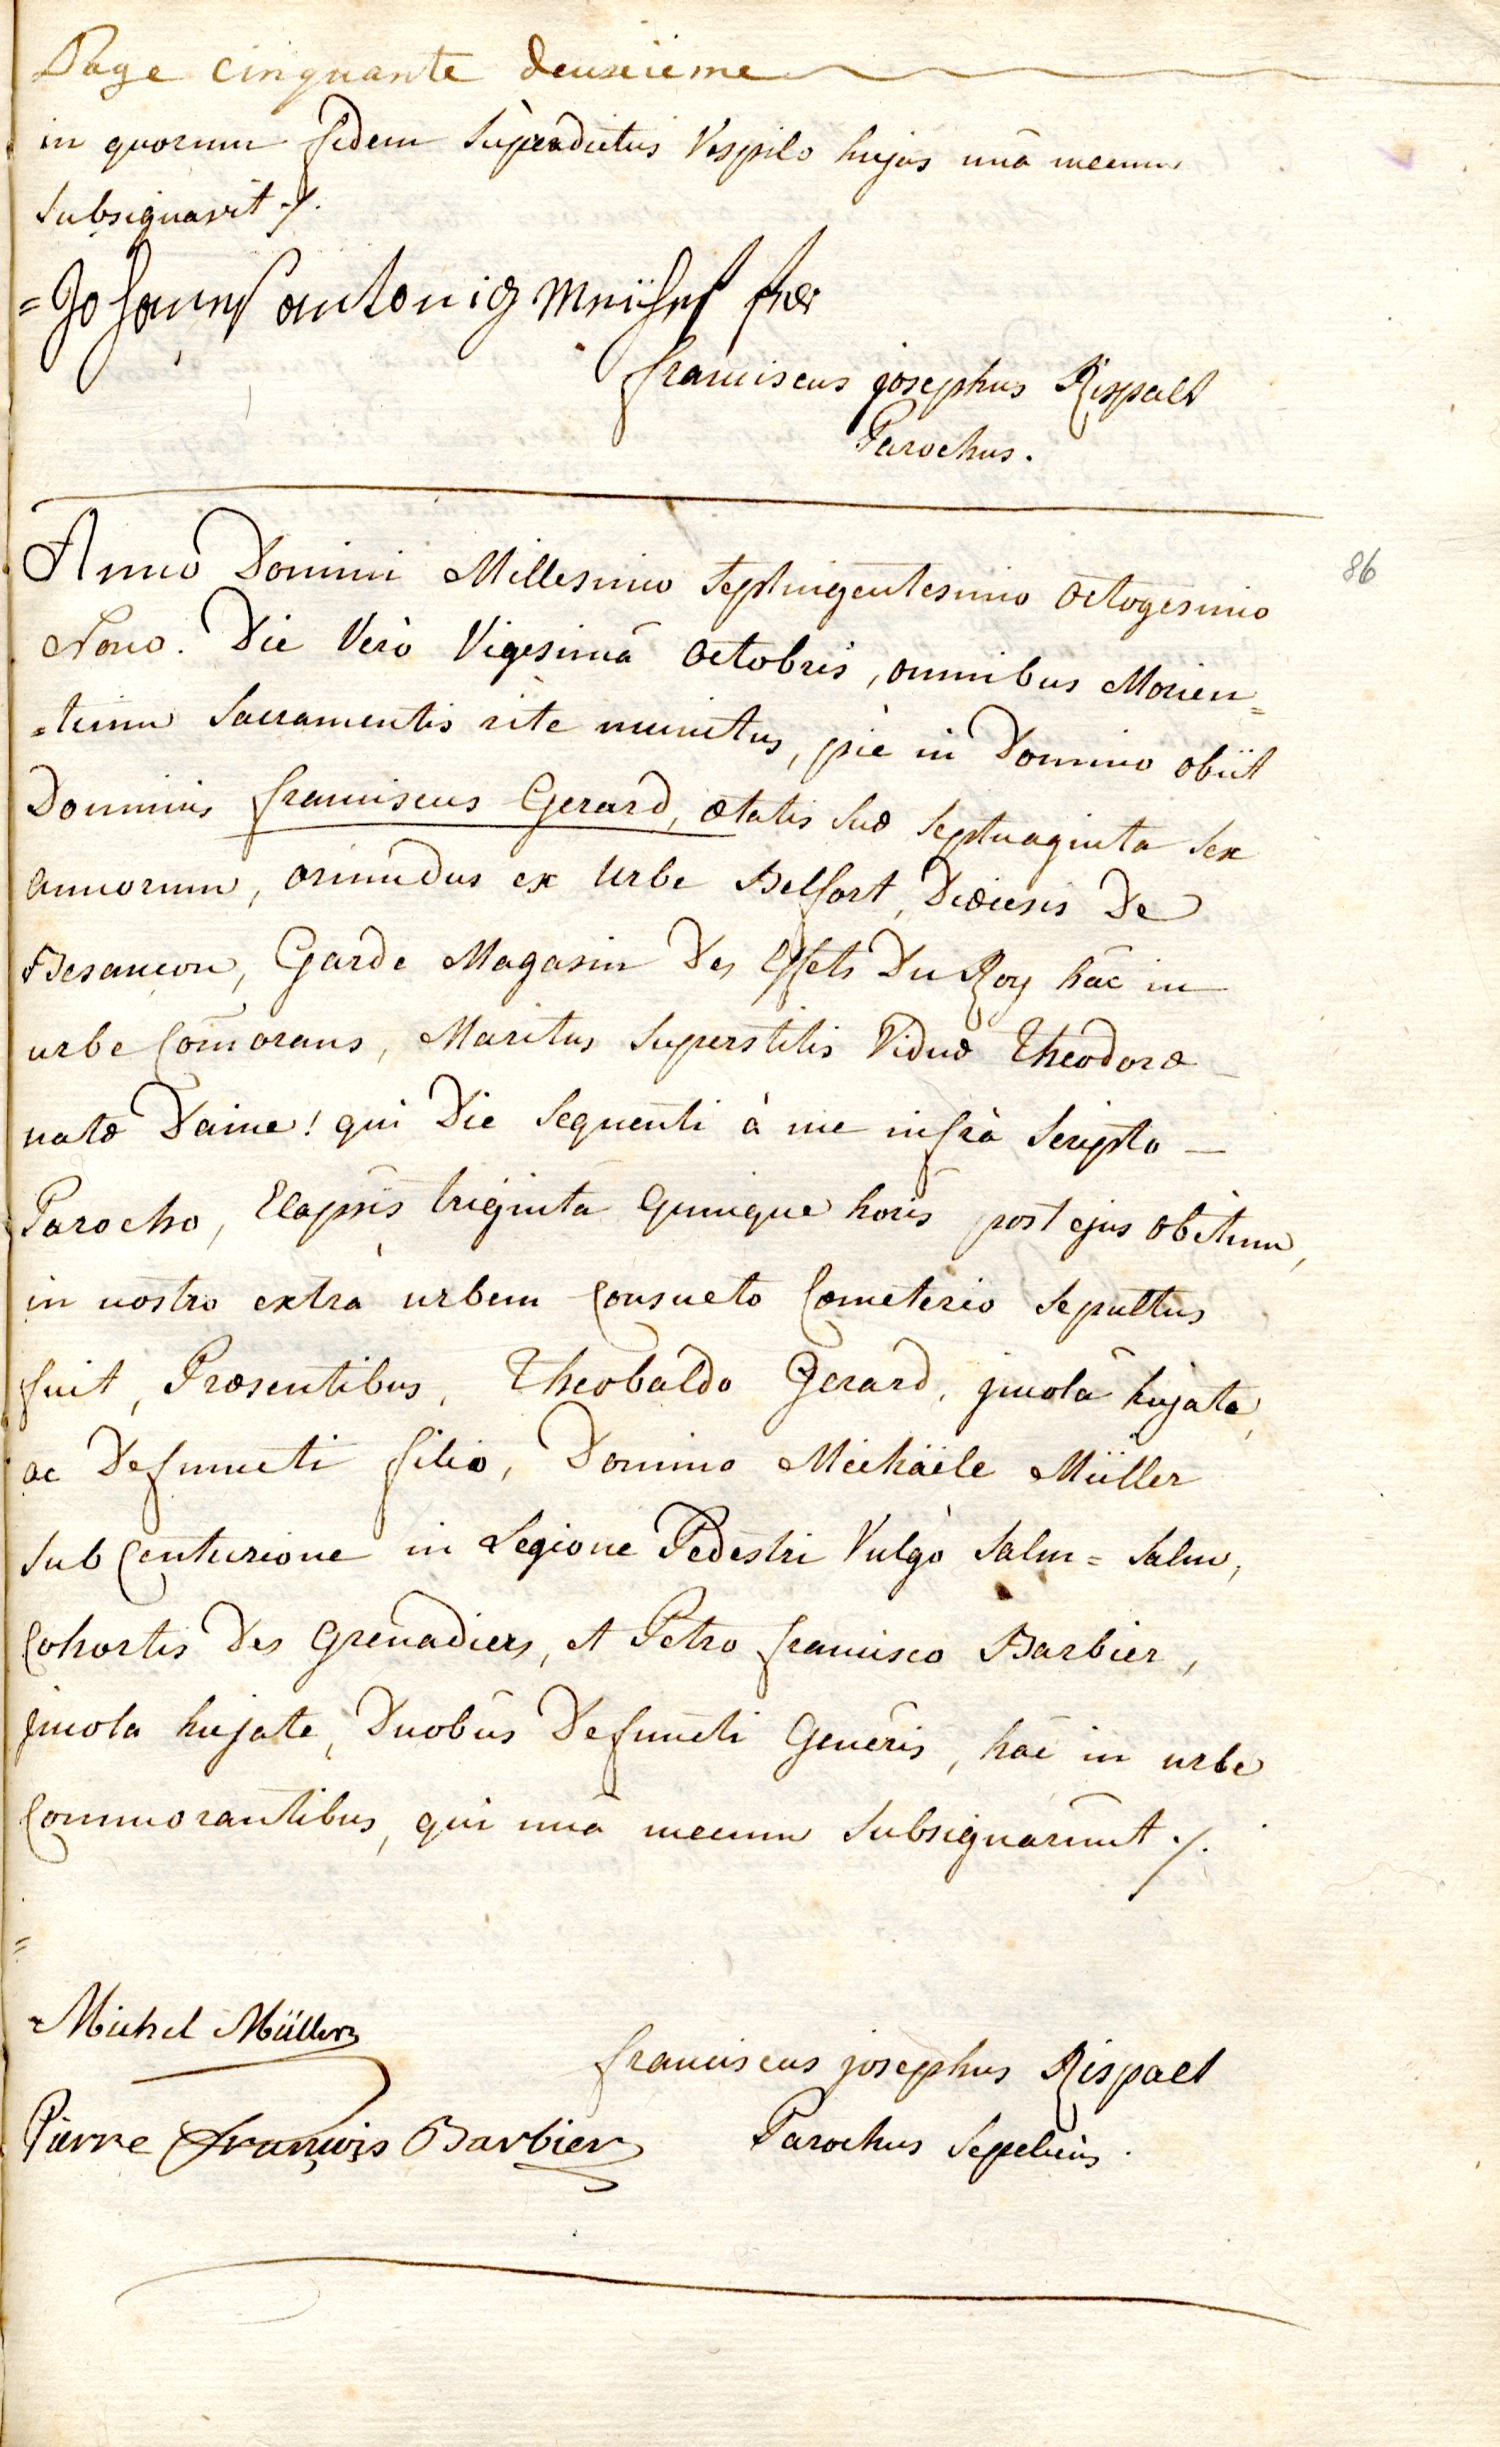 Page cinquante deuxieme
in quorum fidem supradictus Vespilo hujas unà mecum
subsignavit ./.
= Johannes antonig
franciscus josephus Rispalt
Parochus.
86
Anno Domini Millesimo septingentesimo octogesimo
Nono. Die Verò Vigesimâ octobris, omnibus Morien=
=tium Sacramentis ritè munitus, piè in Domino obiit
Dominus franciscus Gerard, ætatis suæ septuaginta sex
annorum, oriundus ex Urbe Belfort, Diœcesis De
Besancon, Garde Magasin Des Effets Du Roy hâc in
urbe Com̄orans, Maritus superstitis Viduæ Theodoræ
natæ Daime! qui Die sequenti à me infrà scripto —
Parocho, Elapsis triginta quinque horis post ejus obitum,
in nostro extrà urbem Consueto Cœmeterio sepultus
fuit, Præsentibus, Theobaldo Gerard, jncolâ hujate,
ac Defuncti filio, Domino Michaële Müller
sub Centurione in Legione Pedestri Vulgò Salm = Salm,
Cohortis Des Grenadiers, et Petro francisco Barbier,
jncola hujate, Duobus Defuncti Generis, hâc in urbe
Commorantibus, qui unà mecum subsignarunt ./.
=
Michel Müller
franciscus josephus Rispalt
Pierre François Barbier
Parochus Sepeliens.